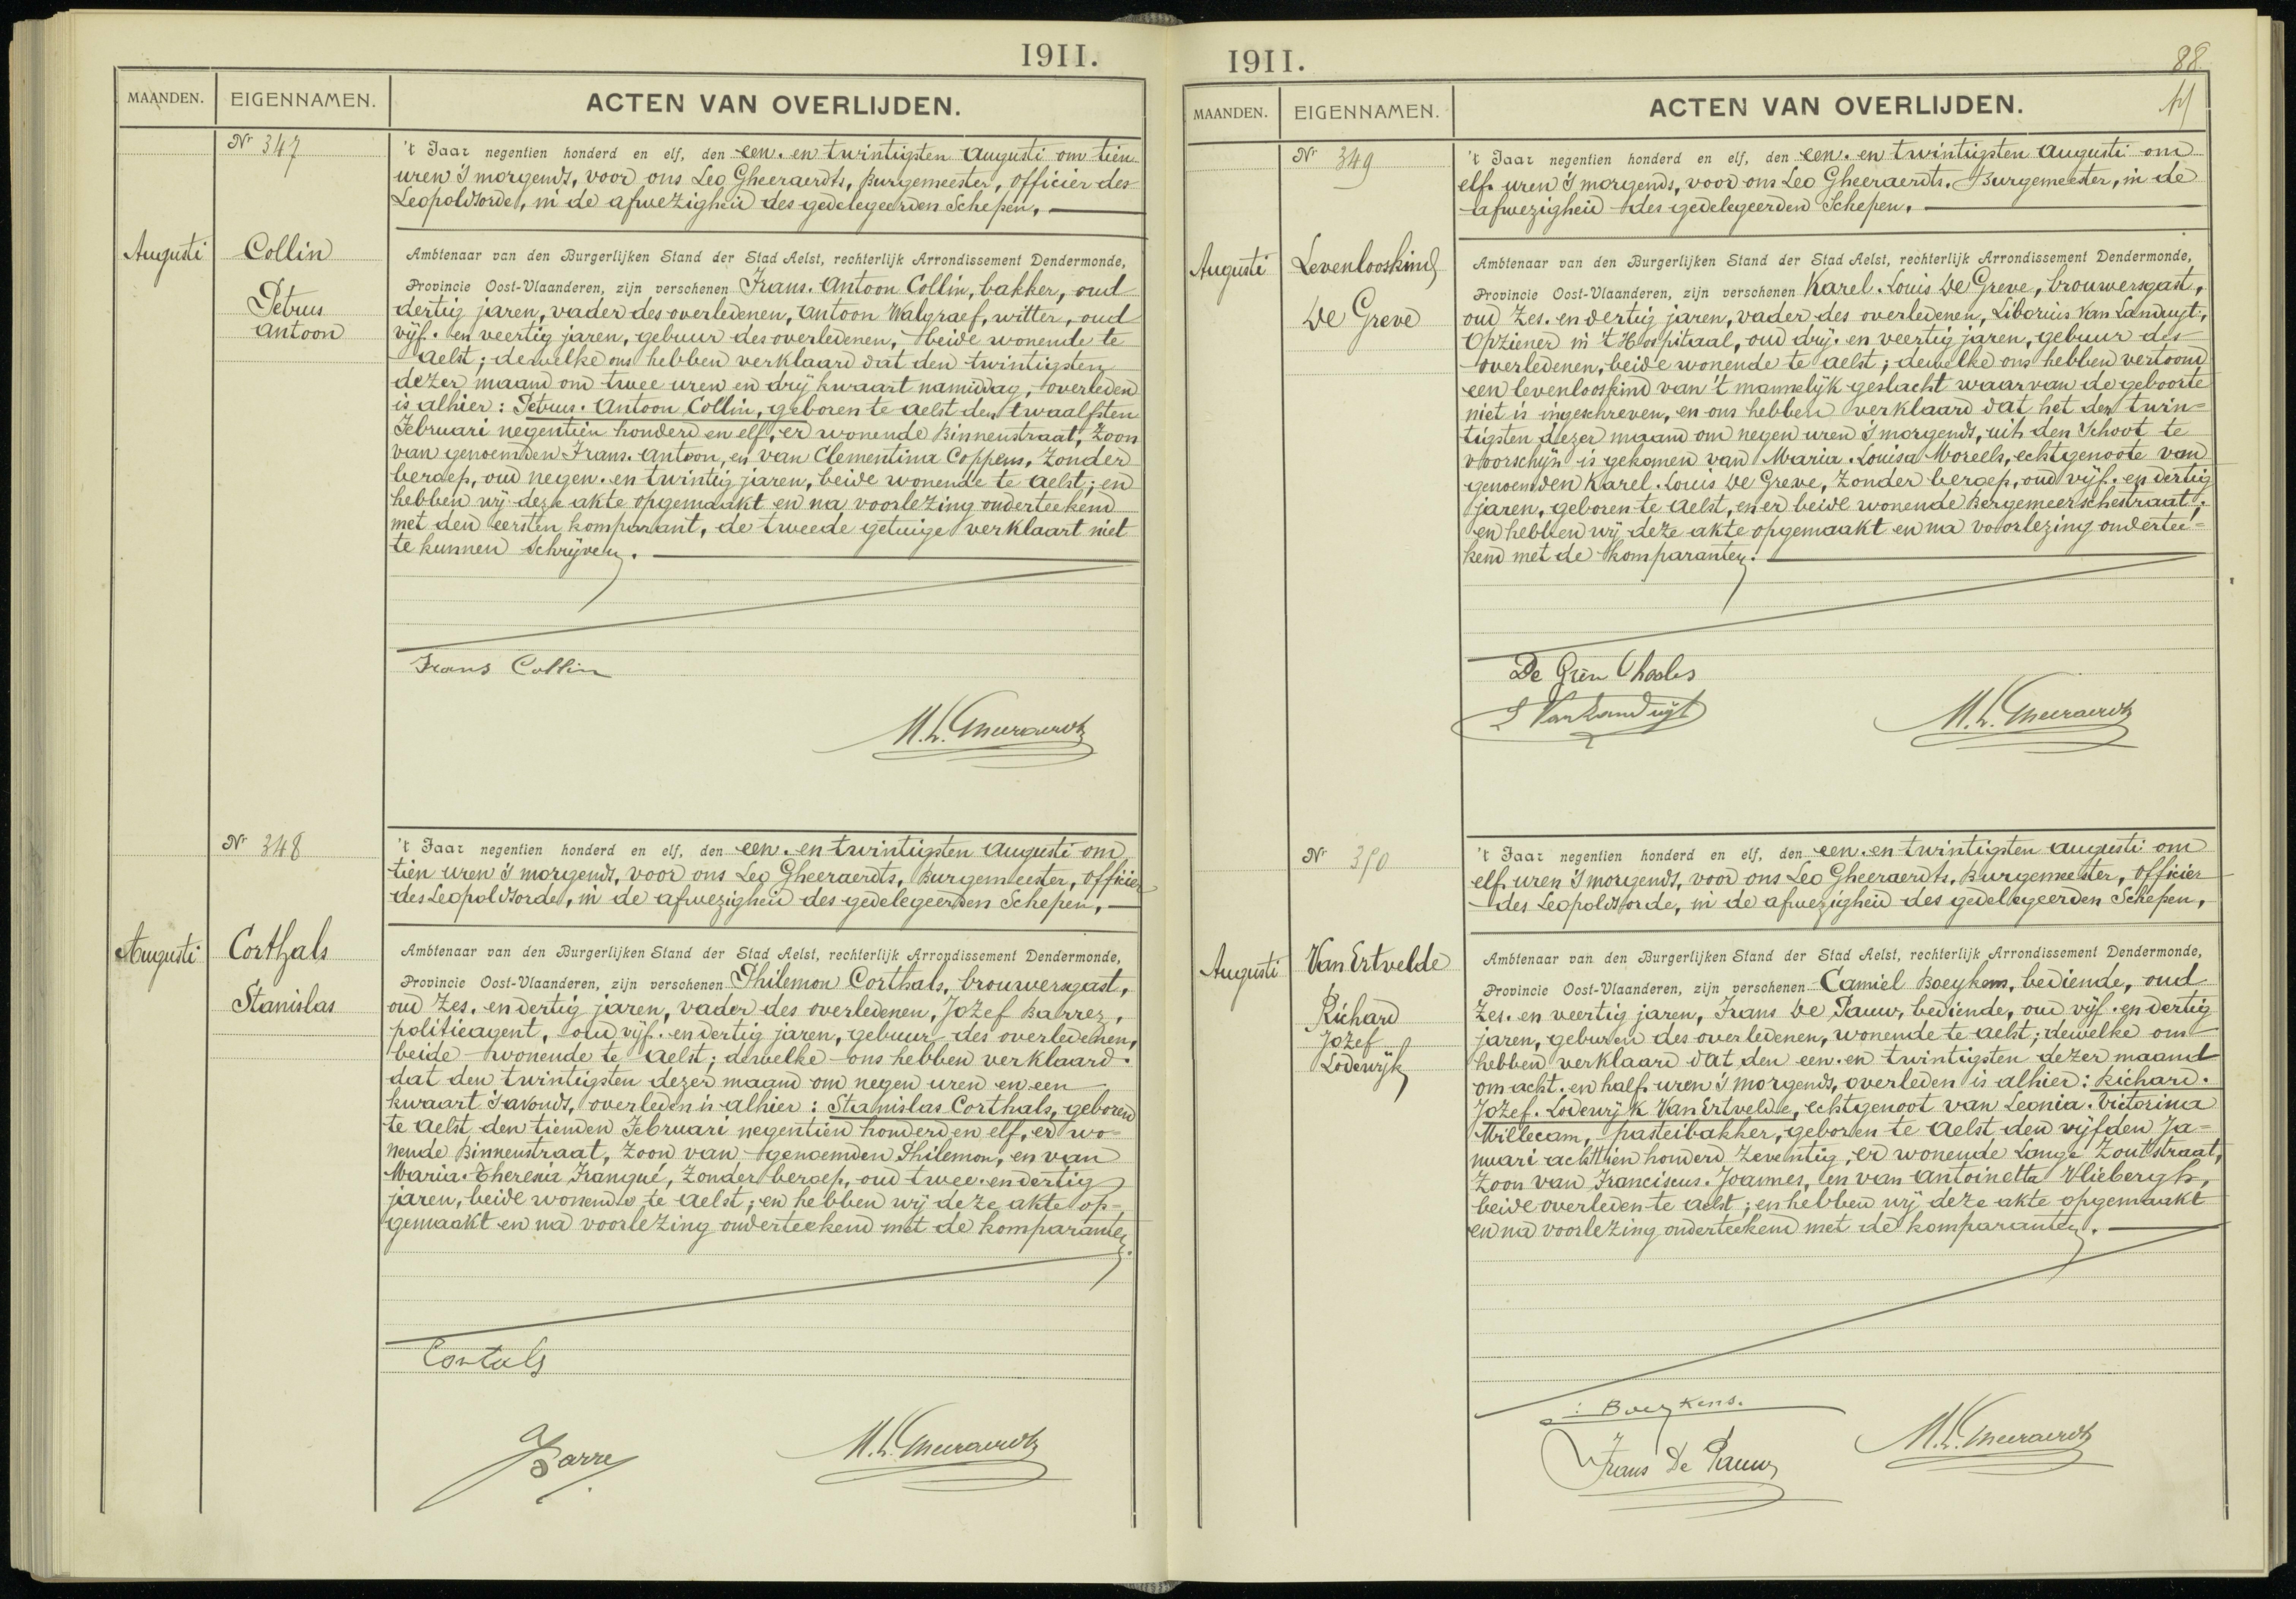 1911.
MAANDEN. EIGENNAMEN. ACTEN VAN OVERLIJDEN.
Nr 347
't Jaar negentien honderd en elf, den een. en twintigsten Augusti om tien
uren 's morgends, voor ons Leo Gheeraerdts, Burgemeester, officier des
Leopoldsorde, in de afwezigheid des gedelegeerden Schepen.
Augusti
Collin
Petrus
Antoon
Ambtenaar van den Burgerlijken Stand der Stad Aelst, rechterlijk Arrondissement Dendermonde,
Provincie Oost-Vlaanderen, zijn verschenen Frans. Antoon Collin, bakker, oud
dertig jaren, vader des overledenen, Antoon Walgraef, witter, oud
vijf. en veertig jaren, gebuur des overledenen, beide wonende te
Aelst; dewelke ons hebben verklaard dat den twintigsten
dezer maand om twee uren en drij kwaart namiddag, overleden
is alhier: Petrus. Antoon Collin, geboren te Aelst den twaalfsten
Februari negentien honderd en elf, er wonende Binnenstraat, zoon
van genoemden Frans. Antoon, en van Clementina Coppens, zonder
beroep, oud negen. en twintig jaren, beide wonende te Aelst; en
hebben wij deze akte opgemaakt en na voorlezing onderteekend
met den eersten komparant, de tweede getuige verklaart niet
te kunnen schrijven.
Frans Collin
M.L. Gheeraerdts
Nr 348
't Jaar negentien honderd en elf, den een. en twintigsten Augusti om
tien uren 's morgends, voor ons Leo Gheeraerdts, Burgemeester, officier
des Leopoldsorde, in de afwezigheid des gedelegeerden Schepen,
Augusti
Corthals
Stanislas
Ambtenaar van den Burgerlijken Stand der Stad Aelst, rechterlijk Arrondissement Dendermonde,
Provincie Oost-Vlaanderen, zijn verschenen Philemon Corthals, brouwersgast,
oud zes. en dertig jaren, vader des overledenen, Jozef Barrez,
politieagent, oud vijf. en dertig jaren, gebuur des overledenen,
beide wonende te Aelst; dewelke ons hebben verklaard
dat den twintigsten dezer maand om negen uren en een
kwaart 's avonds, overleden is alhier: Stanislas Corthals, geboren
te Aelst den tienden Februari negentien honderd en elf, er wo-
nende Binnenstraat, zoon van genoemden Philemon, en van
Maria. Theresia Franqué, zonder beroep, oud twee. en dertig
jaren, beide wonende te Aelst; en hebben wij deze akte op-
gemaakt en na voorlezing onderteekend met de komparanten.
Cortals
Barre
M.L. Gheeraerdts
1911.
88
MAANDEN. EIGENNAMEN. ACTEN VAN OVERLIJDEN.
Nr 349
't Jaar negentien honderd en elf, den een. en twintigsten Augusti om
elf uren 's morgends, voor ons Leo Gheeraerdts, Burgemeester, in de
afwezigheid des gedelegeerden Schepen.
Augusti
Levenlooskind
De Greve
Ambtenaar van den Burgerlijken Stand der Stad Aelst, rechterlijk Arrondissement Dendermonde,
Provincie Oost-Vlaanderen, zijn verschenen Karel. Louis De Greve, brouwersgast,
oud zes. en dertig jaren, vader des overledenen, Liborius Van Landuyt,
Opziener in 't Hospitaal, oud drij. en veertig jaren, gebuur des
overledenen, beide wonende te Aelst; dewelke ons hebben vertoond
een levenlooskind van 't mannelijk geslacht waarvan de geboorte
niet is ingeschreven, en ons hebben verklaard dat het den twin=
tigsten dezer maand om negen uren 's morgends, uit den schoot te
voorschijn is gekomen van Maria. Louisa Moreels, echtgenoote van
genoemden Karel. Louis De Greve, zonder beroep, oud vijf. en dertig
jaren, geboren te Aelst, en er beide wonende Bergemeerschestraat;
en hebben wij deze akte opgemaakt en na voorlezing ondertee=
kend met de komparanten.
De Grève Charles
L Van Landuijt
M.L. Gheeraerdts
Nr 350
't Jaar negentien honderd en elf, den een. en twintigsten Augusti om
elf uren 's morgends, voor ons Leo Gheeraerdts, Burgemeester, officier
des Leopoldsorde, in de afwezigheid des gedelegeerden Schepen,
Augusti
Van Ertvelde
Richard
Jozef
Lodewijk
Ambtenaar van den Burgerlijken Stand der Stad Aelst, rechterlijk Arrondissement Dendermonde,
Provincie Oost-Vlaanderen, zijn verschenen Camiel Boeykens, bediende, oud
zes. en veertig jaren, Frans De Pauw, bediende, oud vijf. en dertig
jaren, geburen des overledenen, wonende te Aelst; dewelke ons
hebben verklaard dat den een. en twintigsten dezer maand
om acht. en half uren 's morgends, overleden is alhier: Richard.
Jozef. Lodewijk Van Ertvelde, echtgenoot van Leonia. Victorina
Willecam, pasteibakker, geboren te Aelst den vijfden Ja=
nuari achttien honderd zeventig, er wonende Lange Zoutstraat,
zoon van Franciscus. Joannes, en van Antoinetta Vliebergh,
beide overleden te Aelst; en hebben wij deze akte opgemaakt
en na voorlezing onderteekend met de komparanten.
Boeykens.
Frans De Pauw
M.L. Gheeraerdts